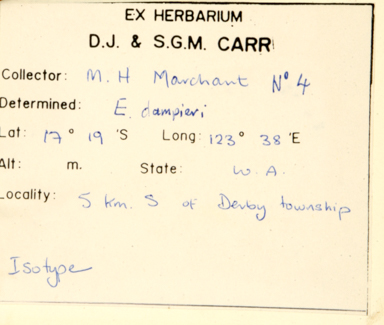 EX HERBARIUM
D.J. & S.G.M. CARR
Collector: M. H Marchant Nº 4
Determined: E. dampieri
Lat: 17° 19 'S Long: 123° 38 'E
Alt: m. State: W. A.
Locality: 5 km. S of Derby township
Isotype